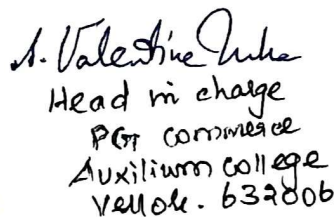 A. Valentine
Head in charge
PG commerce
Auxilium college
Vellore. 632006